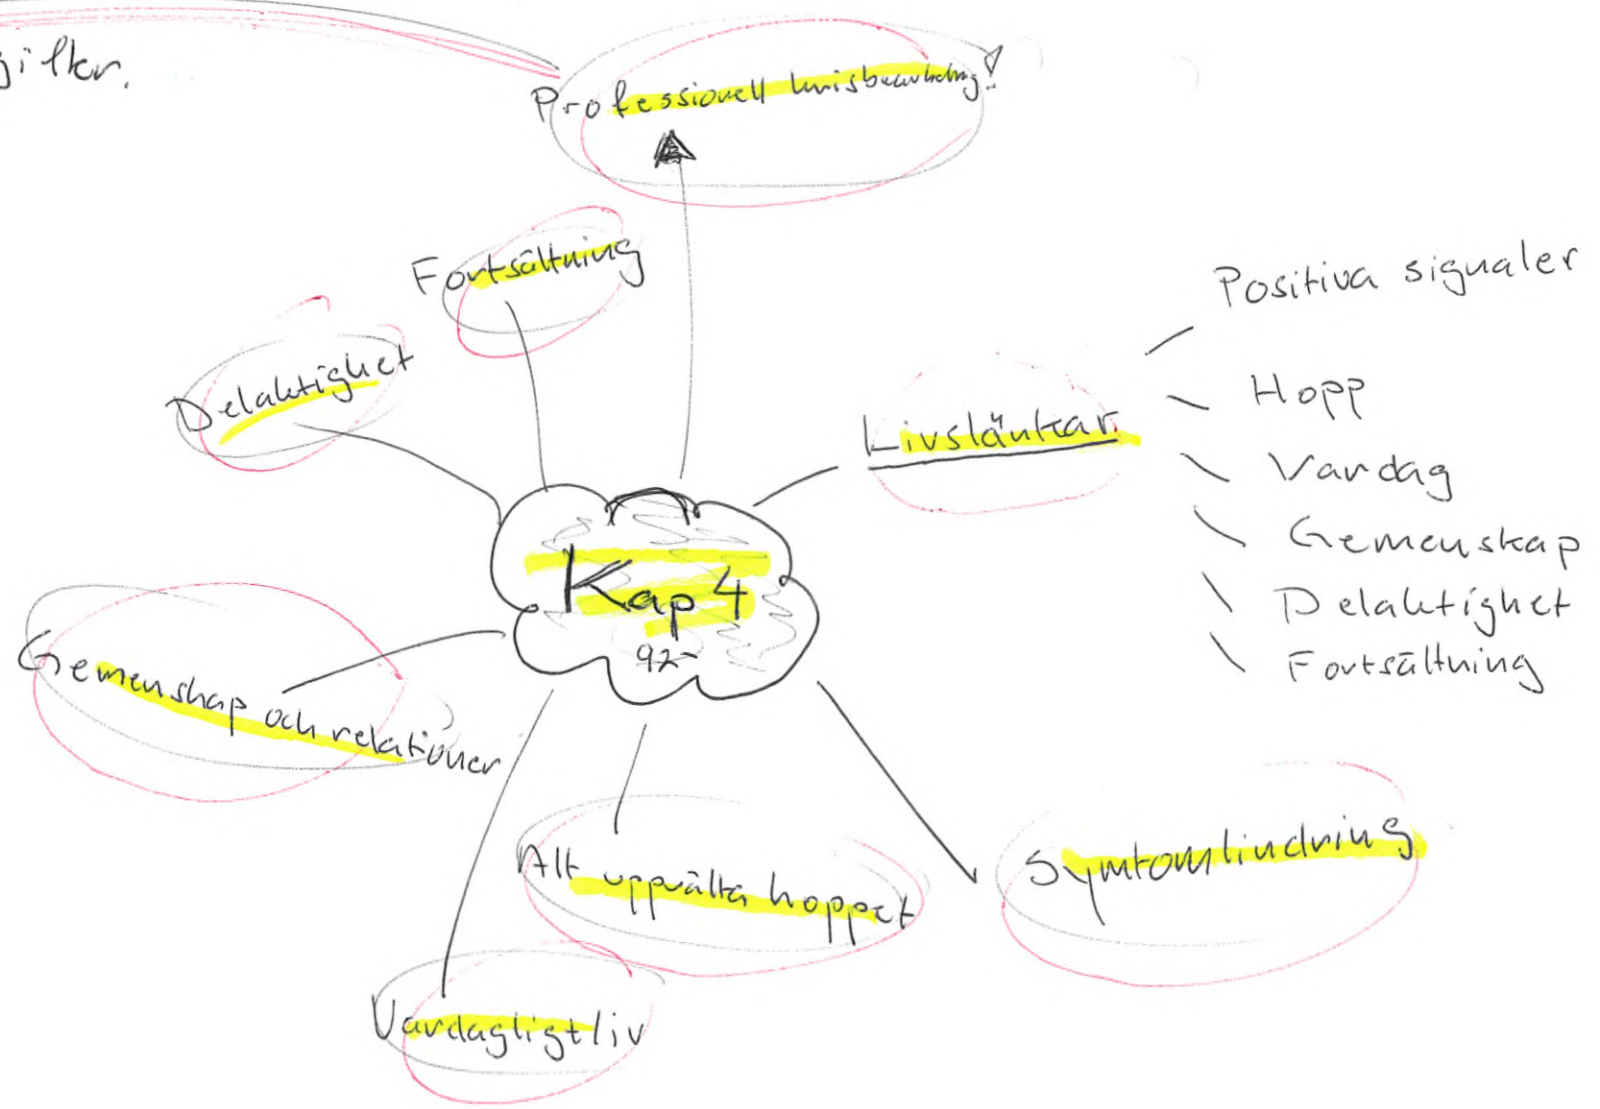 Professionell krisbearbetning!
Fortsättning
Delaktighet
Livslänkar
Positiva signaler
Hopp
Vardag
Gemenskap
Delaktighet
Fortsättning
Kap 4
92-
Gemenskap och relationer
Att uppväcka hoppet
Symtomlindring
Vardagligt liv